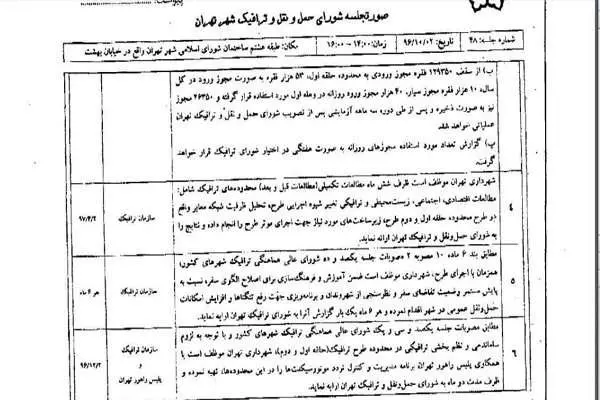 پیوست
صورتجلسه شورای حمل و نقل و ترافیک شهر تهران
شماره جلسه: ۴۸
تاریخ: ۹۶/۱۰/۰۲
زمان: ۱۴:۰۰ – ۱۶:۰۰
مکان: طبقه هشتم ساختمان شورای اسلامی شهر تهران واقع در خیابان بهشت
ب) از سقف ۱۲۹۳۵۰ فقره مجوز ورودی به محدوده حلقه اول، ۵۳ هزار فقره به صورت مجوز ورود در کل
سال، ۱۰ هزار فقره مجوز سیار، ۴۰ هزار مجوز ورود روزانه در وهله اول مورد استفاده قرار گرفته و ۲۶۳۵۰ مجوز
نیز به صورت ذخیره و پس از طی دوره سه ماهه آزمایشی پس از تصویب شورای حمل و نقل و ترافیک تهران
عملیاتی خواهد شد.
پ) گزارش تعداد مورد استفاده مجوزهای روزانه به صورت هفتگی در اختیار شورای ترافیک قرار خواهد
گرفت.
۴
شهرداری تهران موظف است ظرف شش ماه مطالعات تکمیلی (مطالعات قبل و بعد) محدوده‌های ترافیک شامل:
مطالعات اقتصادی، اجتماعی، زیست‌محیطی و ترافیکی تغییر شیوه اجرایی طرح، تحلیل ظرفیت شبکه معابر واقع
در طرح محدوده حلقه اول و دوم طرح، زیرساخت‌های مورد نیاز جهت اجرای موثر طرح را انجام داده و نتایج را
به شورای حمل‌ونقل و ترافیک تهران ارائه نماید.
سازمان ترافیک
۹۷/۴/۲
۵
مطابق بند ۶ ماده ۱۰ مصوبه ۲ مصوبات جلسه یکصد و ده شورای عالی هماهنگی ترافیک شهرهای کشور؛
همزمان با اجرای طرح، شهرداری موظف است ضمن آموزش و فرهنگ‌سازی برای اصلاح الگوی سفر، نسبت به
پایش مستمر وضعیت تقاضای سفر و نظرسنجی از شهروندان و برنامه‌ریزی جهت رفع تنگناها و افزایش امکانات
حمل‌ونقل عمومی در شهر اقدام نموده و هر ۶ ماه یک بار گزارش آنرا به شورای ترافیک تهران ارایه نماید.
سازمان ترافیک
هر ۶ ماه
۶
مطابق مصوبات جلسه یکصد و سی و یک شورای عالی هماهنگی ترافیک شهرهای کشور و با توجه به لزوم
ساماندهی و نظم بخشی ترافیکی در محدوده طرح ترافیک (حلقه اول و دوم)، شهرداری تهران موظف است با
همکاری پلیس راهور تهران برنامه مدیریت و کنترل تردد موتورسیکلت‌ها را در این محدوده‌ها، تهیه نموده و
ظرف مدت دو ماه به شورای حمل‌ونقل و ترافیک تهران ارایه نماید.
سازمان ترافیک
و
پلیس راهور تهران
۹۶/۱۲/۲